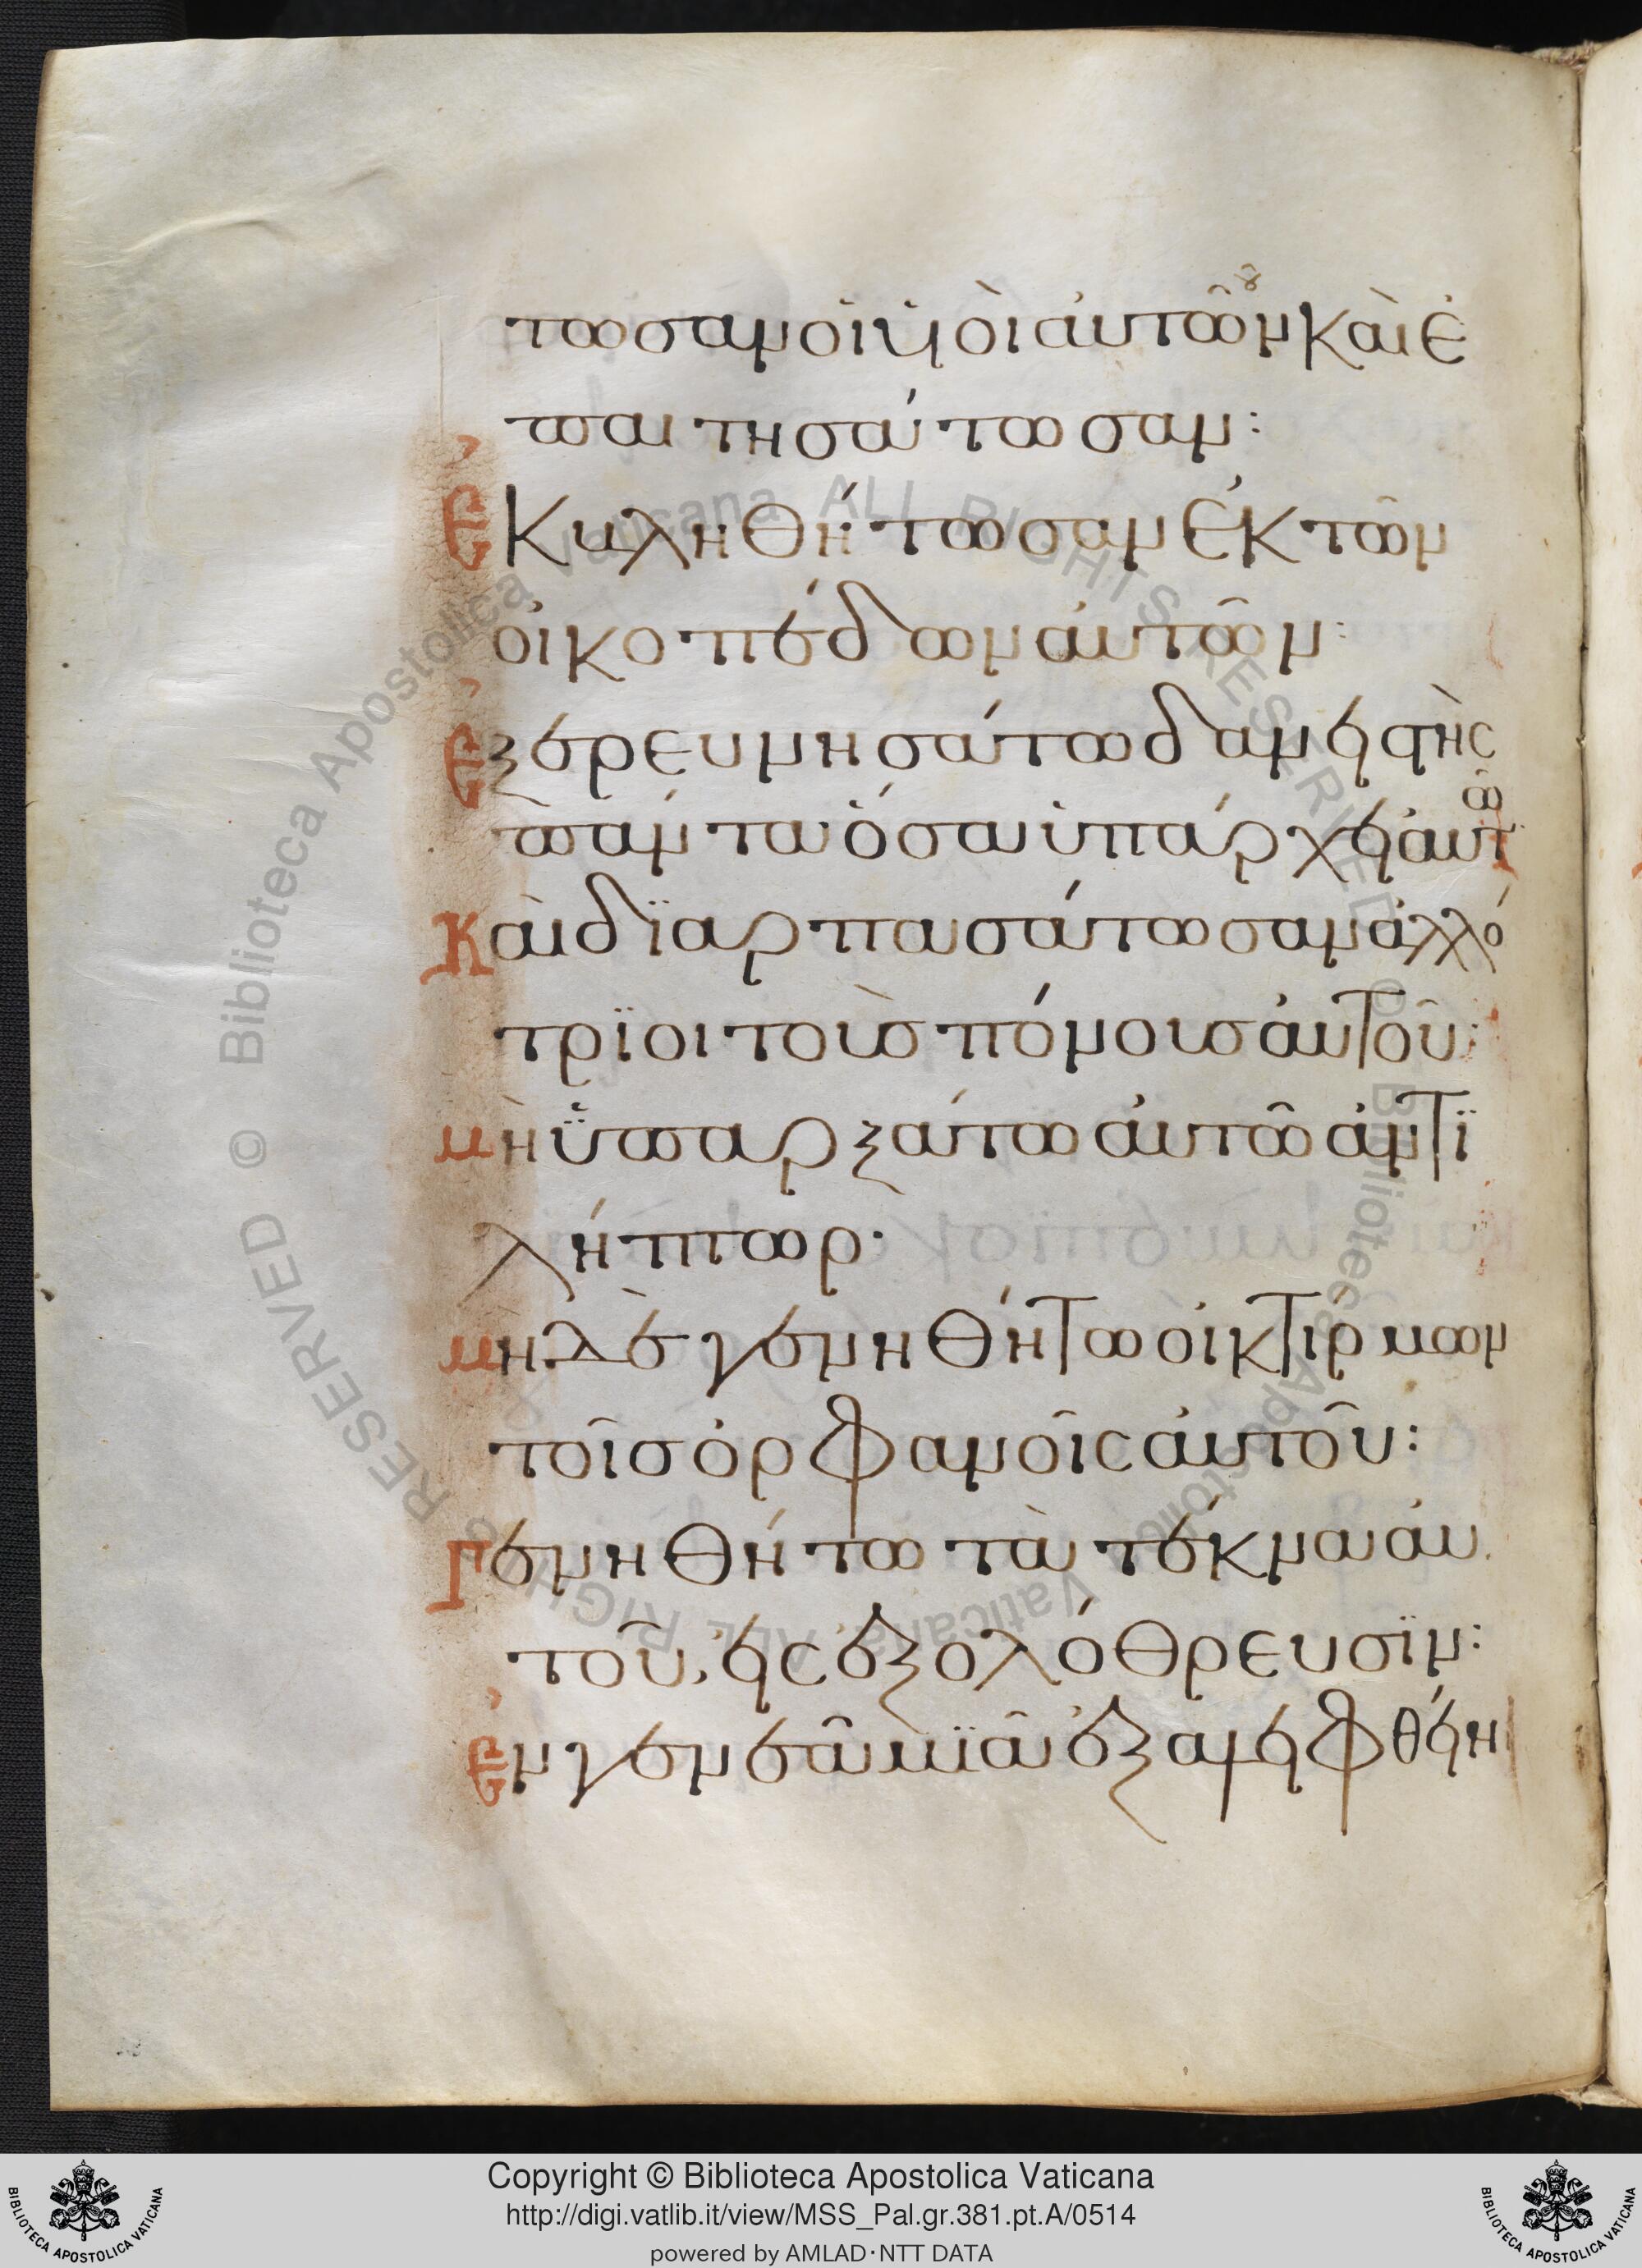 τωσαν οἱ υἱοὶ αὐτῶν καὶ ἐ
οῦ
παιτησάτωσαν:
Ἐκβληθήτωσαν ἐκ τῶν
οἰκοπέδων αὐτῶν:
Ἐξερευνησάτω δανειστὴς
πάντα ὅσα ὑπάρχει αὐτ
ῶ
Καὶ διαρπασάτωσαν ἀλλό
τριοι τοὺς πόνους αὐτοῦ:
μὴ ὑπαρξάτω αὐτῶ ἀντι
λήπτωρ·
μηδὲ γενηθήτω οἰκτίρμων
τοῖς ὀρφανοῖς αὐτοῦ:
Γενηθήτω τὰ τέκνα αὐ
τοῦ, εἰς ἐξολόθρευσιν:
Ἐν γενεᾶ μιᾶ ἐξαλειφθείη
Biblioteca Apostolica Vaticana ALL RIGHTS RESERVED ©
Biblioteca Apostolica Vaticana ALL RIGHTS RESERVED ©
BIBLIOTECA APOSTOLICA VATICANA
Copyright © Biblioteca Apostolica Vaticana
http://digi.vatlib.it/view/MSS_Pal.gr.381.pt.A/0514
powered by AMLAD·NTT DATA
BIBLIOTECA APOSTOLICA VATICANA